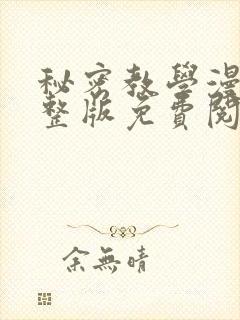 秘密教學漫
整版免費閱
余無晴